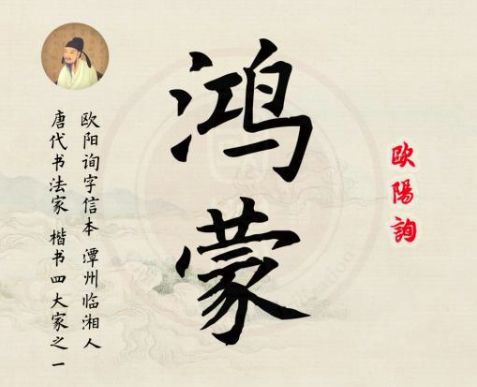 欧陽詢
鸿蒙
欧阳询字信本 潭州临湘人
唐代书法家 楷书四大家之一